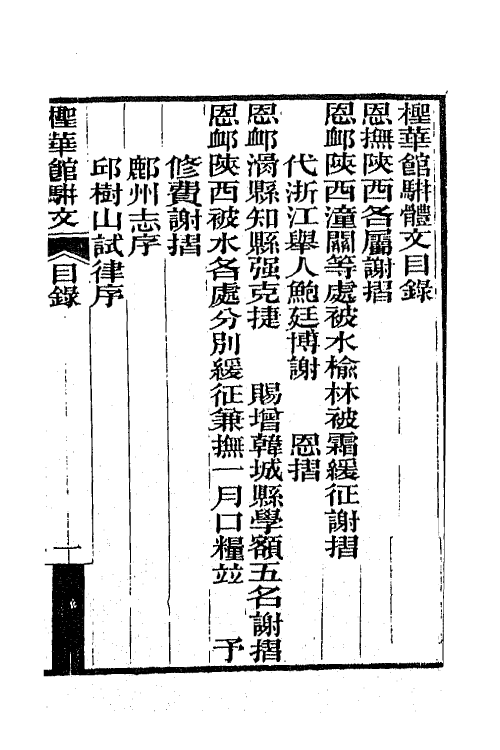 檉華館駢體文目錄
恩撫陝西各屬謝摺
恩䘏陝西潼關等處被水榆林被霜緩征謝摺
代浙江舉人鮑廷博謝 恩摺
恩䘏滑縣知縣强克捷 賜增韓城縣學額五名謝摺
恩䘏陝西被水各處分別緩征兼撫一月口糧竝 予
修費謝摺
鄜州志序
邱樹山試律序
檉華館駢文 目錄 一